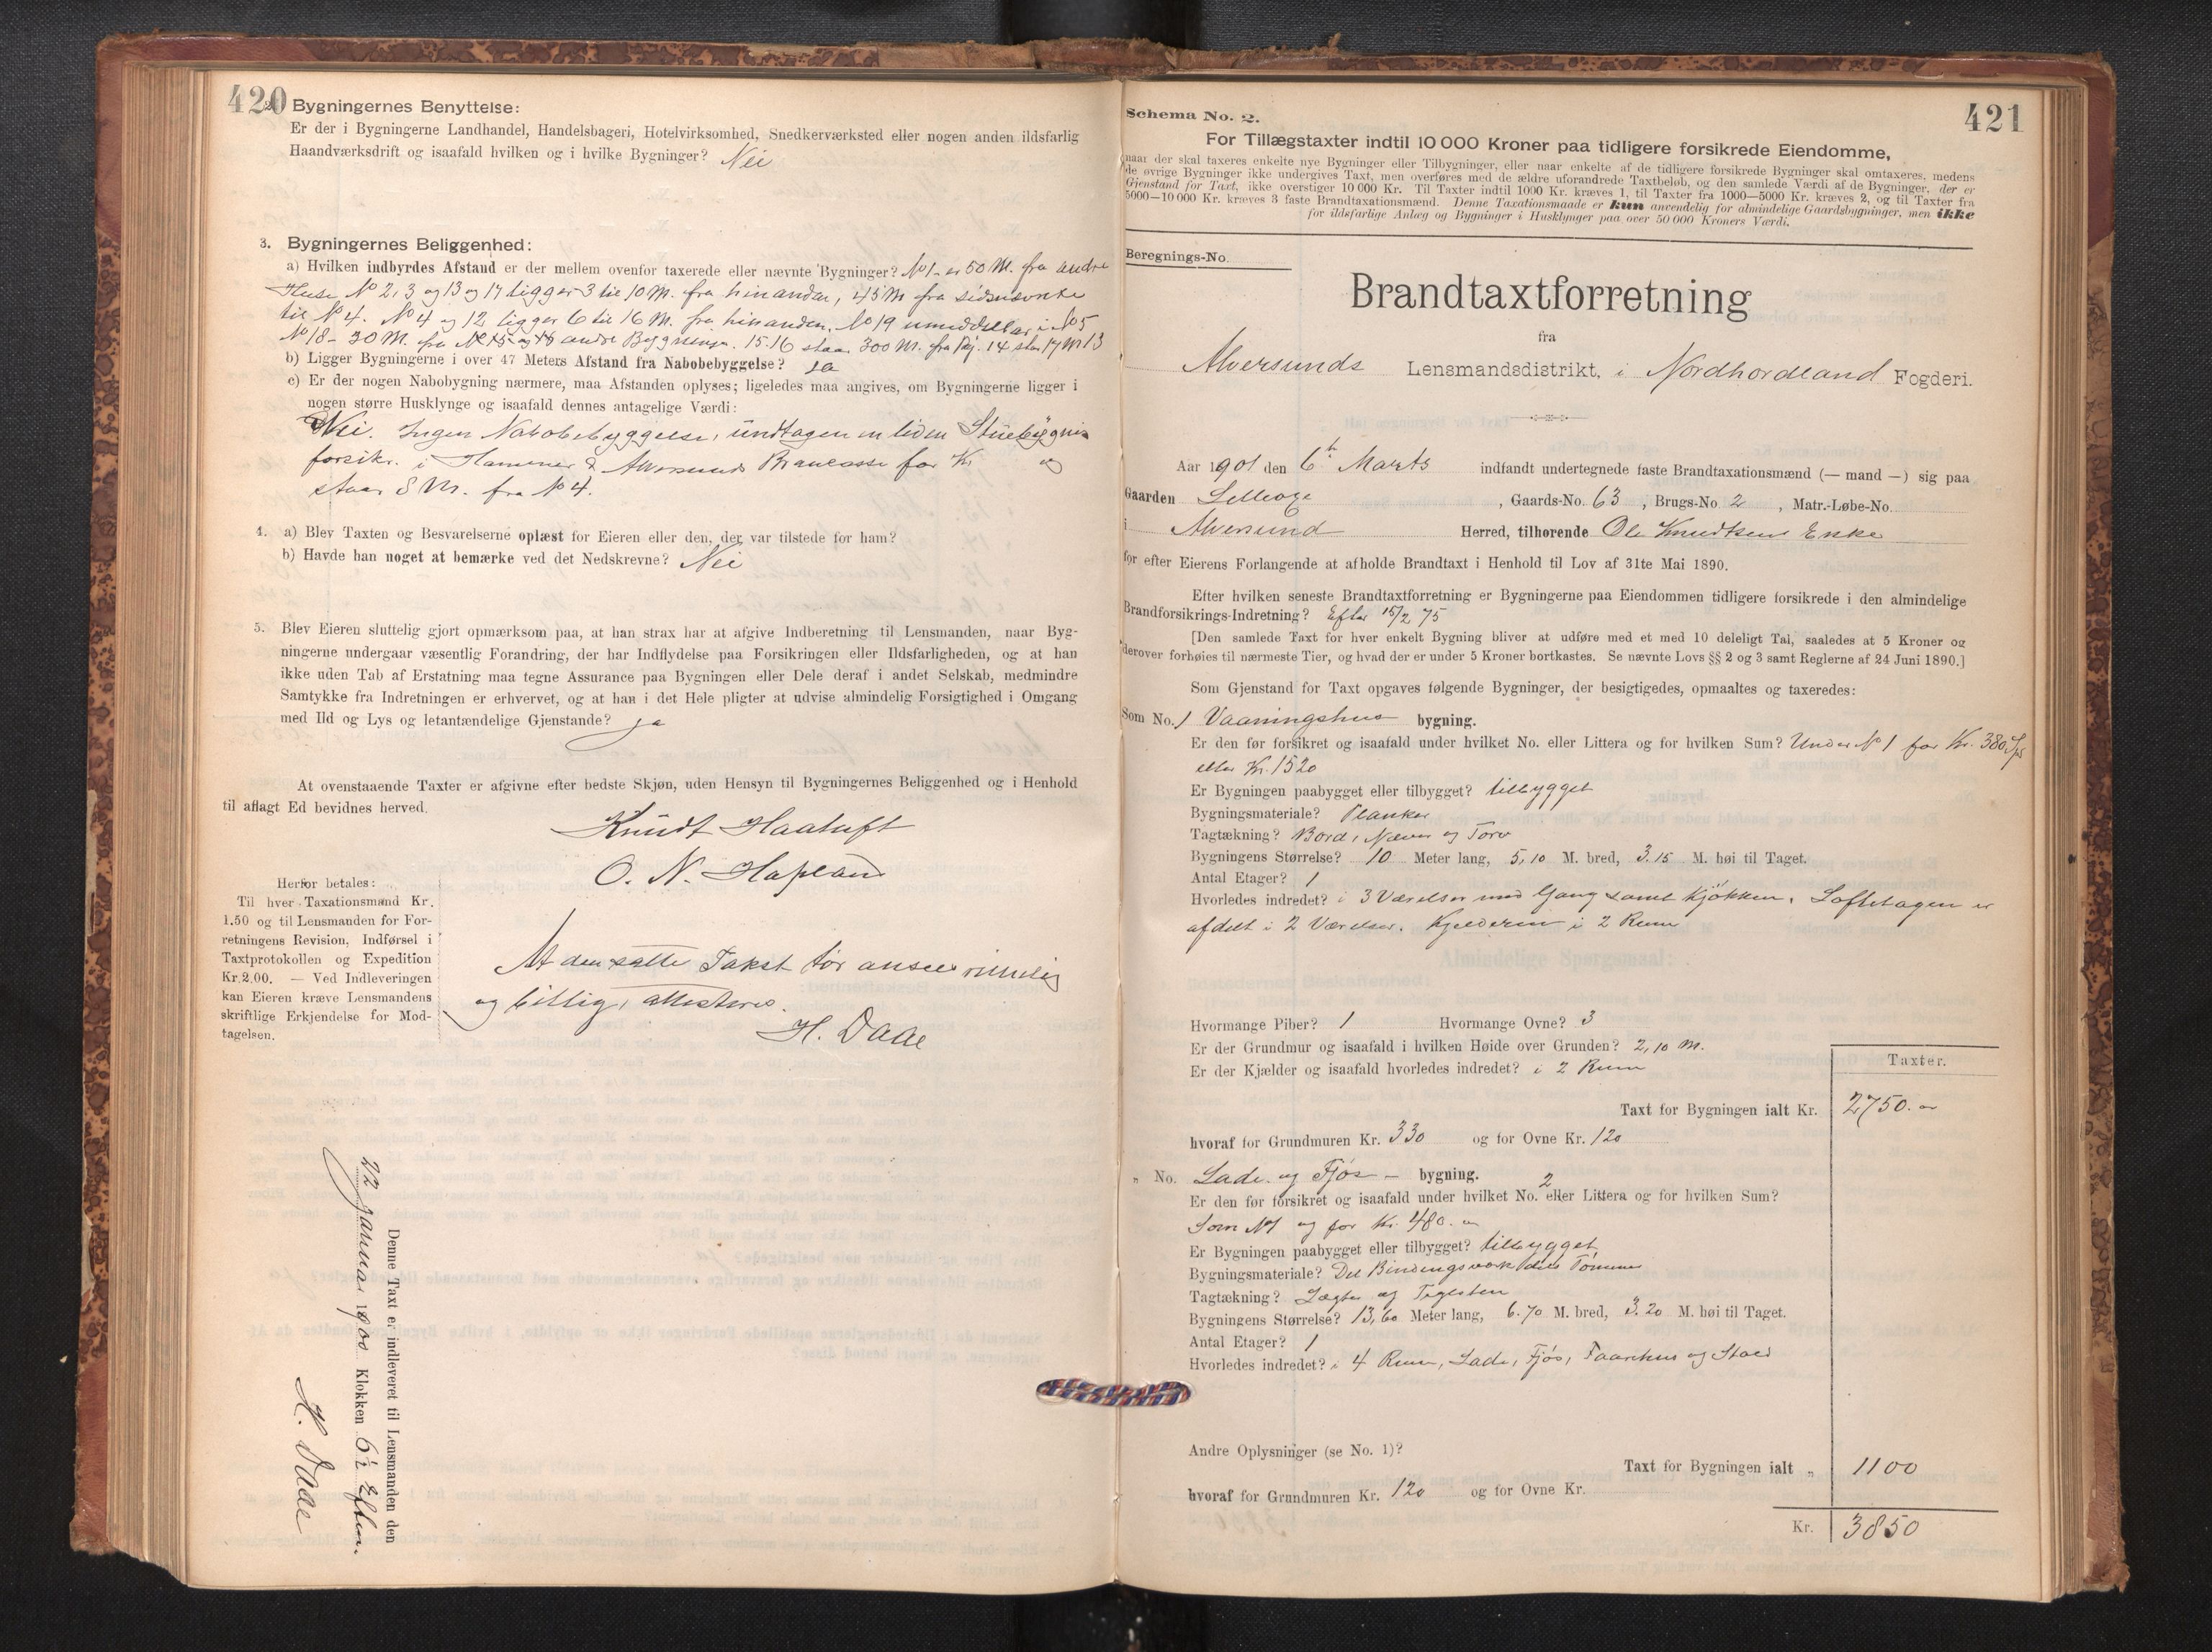 420
2. Bygningernes Benyttelse:
Er der i Bygningerne Landhandel, Handelsbageri, Hotelvirksomhed, Snedkerværksted eller nogen anden ildsfarlig
Haandværksdrift og isaafald hvilken og i hvilke Bygninger? Nei
3. Bygningernes Beliggenhed:
a) Hvilken indbyrdes Afstand er der mellem ovenfor taxerede eller nævnte Bygninger? No 1 er 50 M. fra andre
Huse No 2, 3 og 13 og 17 ligger 3 til 10 M. fra hinanden, 45 M fra sidsnævnte
til No 4. No 4 og 12 ligger 6 til 16 M. fra hinanden. No 19 umiddelbar i No 5
No 18 - 30 M. fra andre Bygninger. 15.16 staar 300 M. fra Byg. 14 star 17 M 13
b) Ligger Bygningerne i over 47 Meters Afstand fra Nabobebyggelse? Ja
c) Er der nogen Nabobygning nærmere, maa Afstanden oplyses; ligeledes maa angives, om Bygningerne ligger i
nogen større Husklynge og isaafald dennes antagelige Værdi:
Nei. Ingen Nabobebyggelse, undtagen en liden Stuebygning
forsikr. i Hammer & Alversunds Brancasse for Kr og
staar 8 M. fra No 4.
4. a) Blev Taxten og Besvarelserne oplæst for Eieren eller den, der var tilstede for ham?
b) Havde han noget at bemærke ved det Nedskrevne? Nei
5. Blev Eieren sluttelig gjort opmærksom paa, at han strax har at afgive Indberetning til Lensmanden, naar Byg-
ningerne undergaar væsentlig Forandring, der har Indflydelse paa Forsikringen eller Ildsfarligheden, og at han
ikke uden Tab af Erstatning maa tegne Assurance paa Bygningen eller Dele deraf i andet Selskab, medmindre
Samtykke fra Indretningen er erhvervet, og at han i det Hele pligter at udvise almindelig Forsigtighed i Omgang
med Ild og Lys og letantændelige Gjenstande? ja
At ovenstaaende Taxter er afgivne efter bedste Skjøn, uden Hensyn til Bygningernes Beliggenhed og i Henhold
til aflagt Ed bevidnes herved.
Knudt Haatuft
O. N. Hopland
Herfor betales:
Til hver Taxationsmand Kr.
1.50 og til Lensmanden for For-
retningens Revision, Indførsel i
Taxtprotokollen og Expedition
Kr. 2.00. — Ved Indleveringen
kan Eieren kræve Lensmandens
skriftlige Erkjendelse for Mod-
tagelsen.
At den satte Takst tør ansees rimelig
og billig, attesteres.
H. Daae
Denne Taxt er indleveret til Lensmanden den
22 Januar 1900 Klokken 6½ Eftm.
H. Daae
421
Schema No. 2.
For Tillægstaxter indtil 10 000 Kroner paa tidligere forsikrede Eiendomme,
naar der skal taxeres enkelte nye Bygninger eller Tilbygninger, eller naar enkelte af de tidligere forsikrede Bygninger skal omtaxeres, medens
de øvrige Bygninger ikke undergives Taxt, men overføres med de ældre uforandrede Taxtbeløb, og den samlede Værdi af de Bygninger, der er
Gjenstand for Taxt, ikke overstiger 10 000 Kr. Til Taxter indtil 1000 Kr. kræves 1, til Taxter fra 1000—5000 Kr. kræves 2, og til Taxter fra
5000—10 000 Kr. kræves 3 faste Brandtaxationsmænd. Denne Taxationsmaade er kun anvendelig for almindelige Gaardsbygninger, men ikke
for ildsfarlige Anlæg og Bygninger i Husklynger paa over 50 000 Kroners Værdi.
Beregnings-No.
Brandtaxtforretning
fra
Alversunds Lensmandsdistrikt, i Nordhordland Fogderi.
Aar 1901 den 6te Marts indfandt undertegnede faste Brandtaxationsmænd (— mand —) sig paa
Gaarden , Gaards-No. 63 , Brugs-No 2 , Matr.-Løbe-No.
i Alversund Herred, tilhørende Ole Knudtsens Enke
for efter Eierens Forlangende at afholde Brandtaxt i Henhold til Lov af 31te Mai 1890.
Efter hvilken seneste Brandtaxtforretning er Bygningerne paa Eiendommen tidligere forsikrede i den almindelige
Brandforsikrings-Indretning? Efter 15/2 75
[Den samlede Taxt for hver enkelt Bygning bliver at udføre med et med 10 deleligt Tal, saaledes at 5 Kroner og
derover forhøies til nærmeste Tier, og hvad der er under 5 Kroner bortkastes. Se nævnte Lovs §§ 2 og 3 samt Reglerne af 24 Juni 1890.]
Som Gjenstand for Taxt opgaves følgende Bygninger, der besigtigedes, opmaaltes og taxeredes:
Som No. 1 Vaaningshus bygning.
Er den før forsikret og isaafald under hvilket No. eller Littera og for hvilken Sum? Under No 1 for Kr. 380 Spd
eller Kr. 1520
Er Bygningen paabygget eller tilbygget? tilbygget
Bygningsmateriale? Planker
Tagtækning? Bord, Næver og Torv
Bygningens Størrelse? 10 Meter lang, 5,10 M. bred, 3.15 M. høi til Taget.
Antal Etager? 1
Hvorledes indredet? i 3 Værelser med Gang samt Kjøkken. Loftetagen er
afdelt i 2 Værelser. Kjelderen i 2 Rum
Hvormange Piber? 1 Hvormange Ovne? 3
Er der Grundmur og isaafald i hvilken Høide over Grunden? 2,10 M.
Er der Kjælder og isaafald hvorledes indredet? i 2 Rum
Taxter.
Taxt for Bygningen ialt Kr. 2750.-
hvoraf for Grundmuren Kr. 330 og for Ovne Kr. 120
" No. Lade og Fjøs - bygning.
Er den før forsikret og isaafald under hvilket No. 2 eller Littera og for hvilken Sum?
Som No 1 og for Kr. 480.-
Er Bygningen paabygget eller tilbygget? tilbygget
Bygningsmateriale? Del Bindingsverk dels Tømmer
Tagtækning? Lægter og Teglsten
Bygningens Størrelse? 13,60 Meter lang, 6.70 M. bred, 3.20 M. høi til Taget.
Antal Etager? 1
Hvorledes indredet? i 4 Rum, Lade, Fjøs, Faarehus og Stald
Andre Oplysninger (se No. 1)?
Taxt for Bygningen ialt " 1100
hvoraf for Grundmuren Kr. 120 og for Ovne Kr.
Kr. 3850